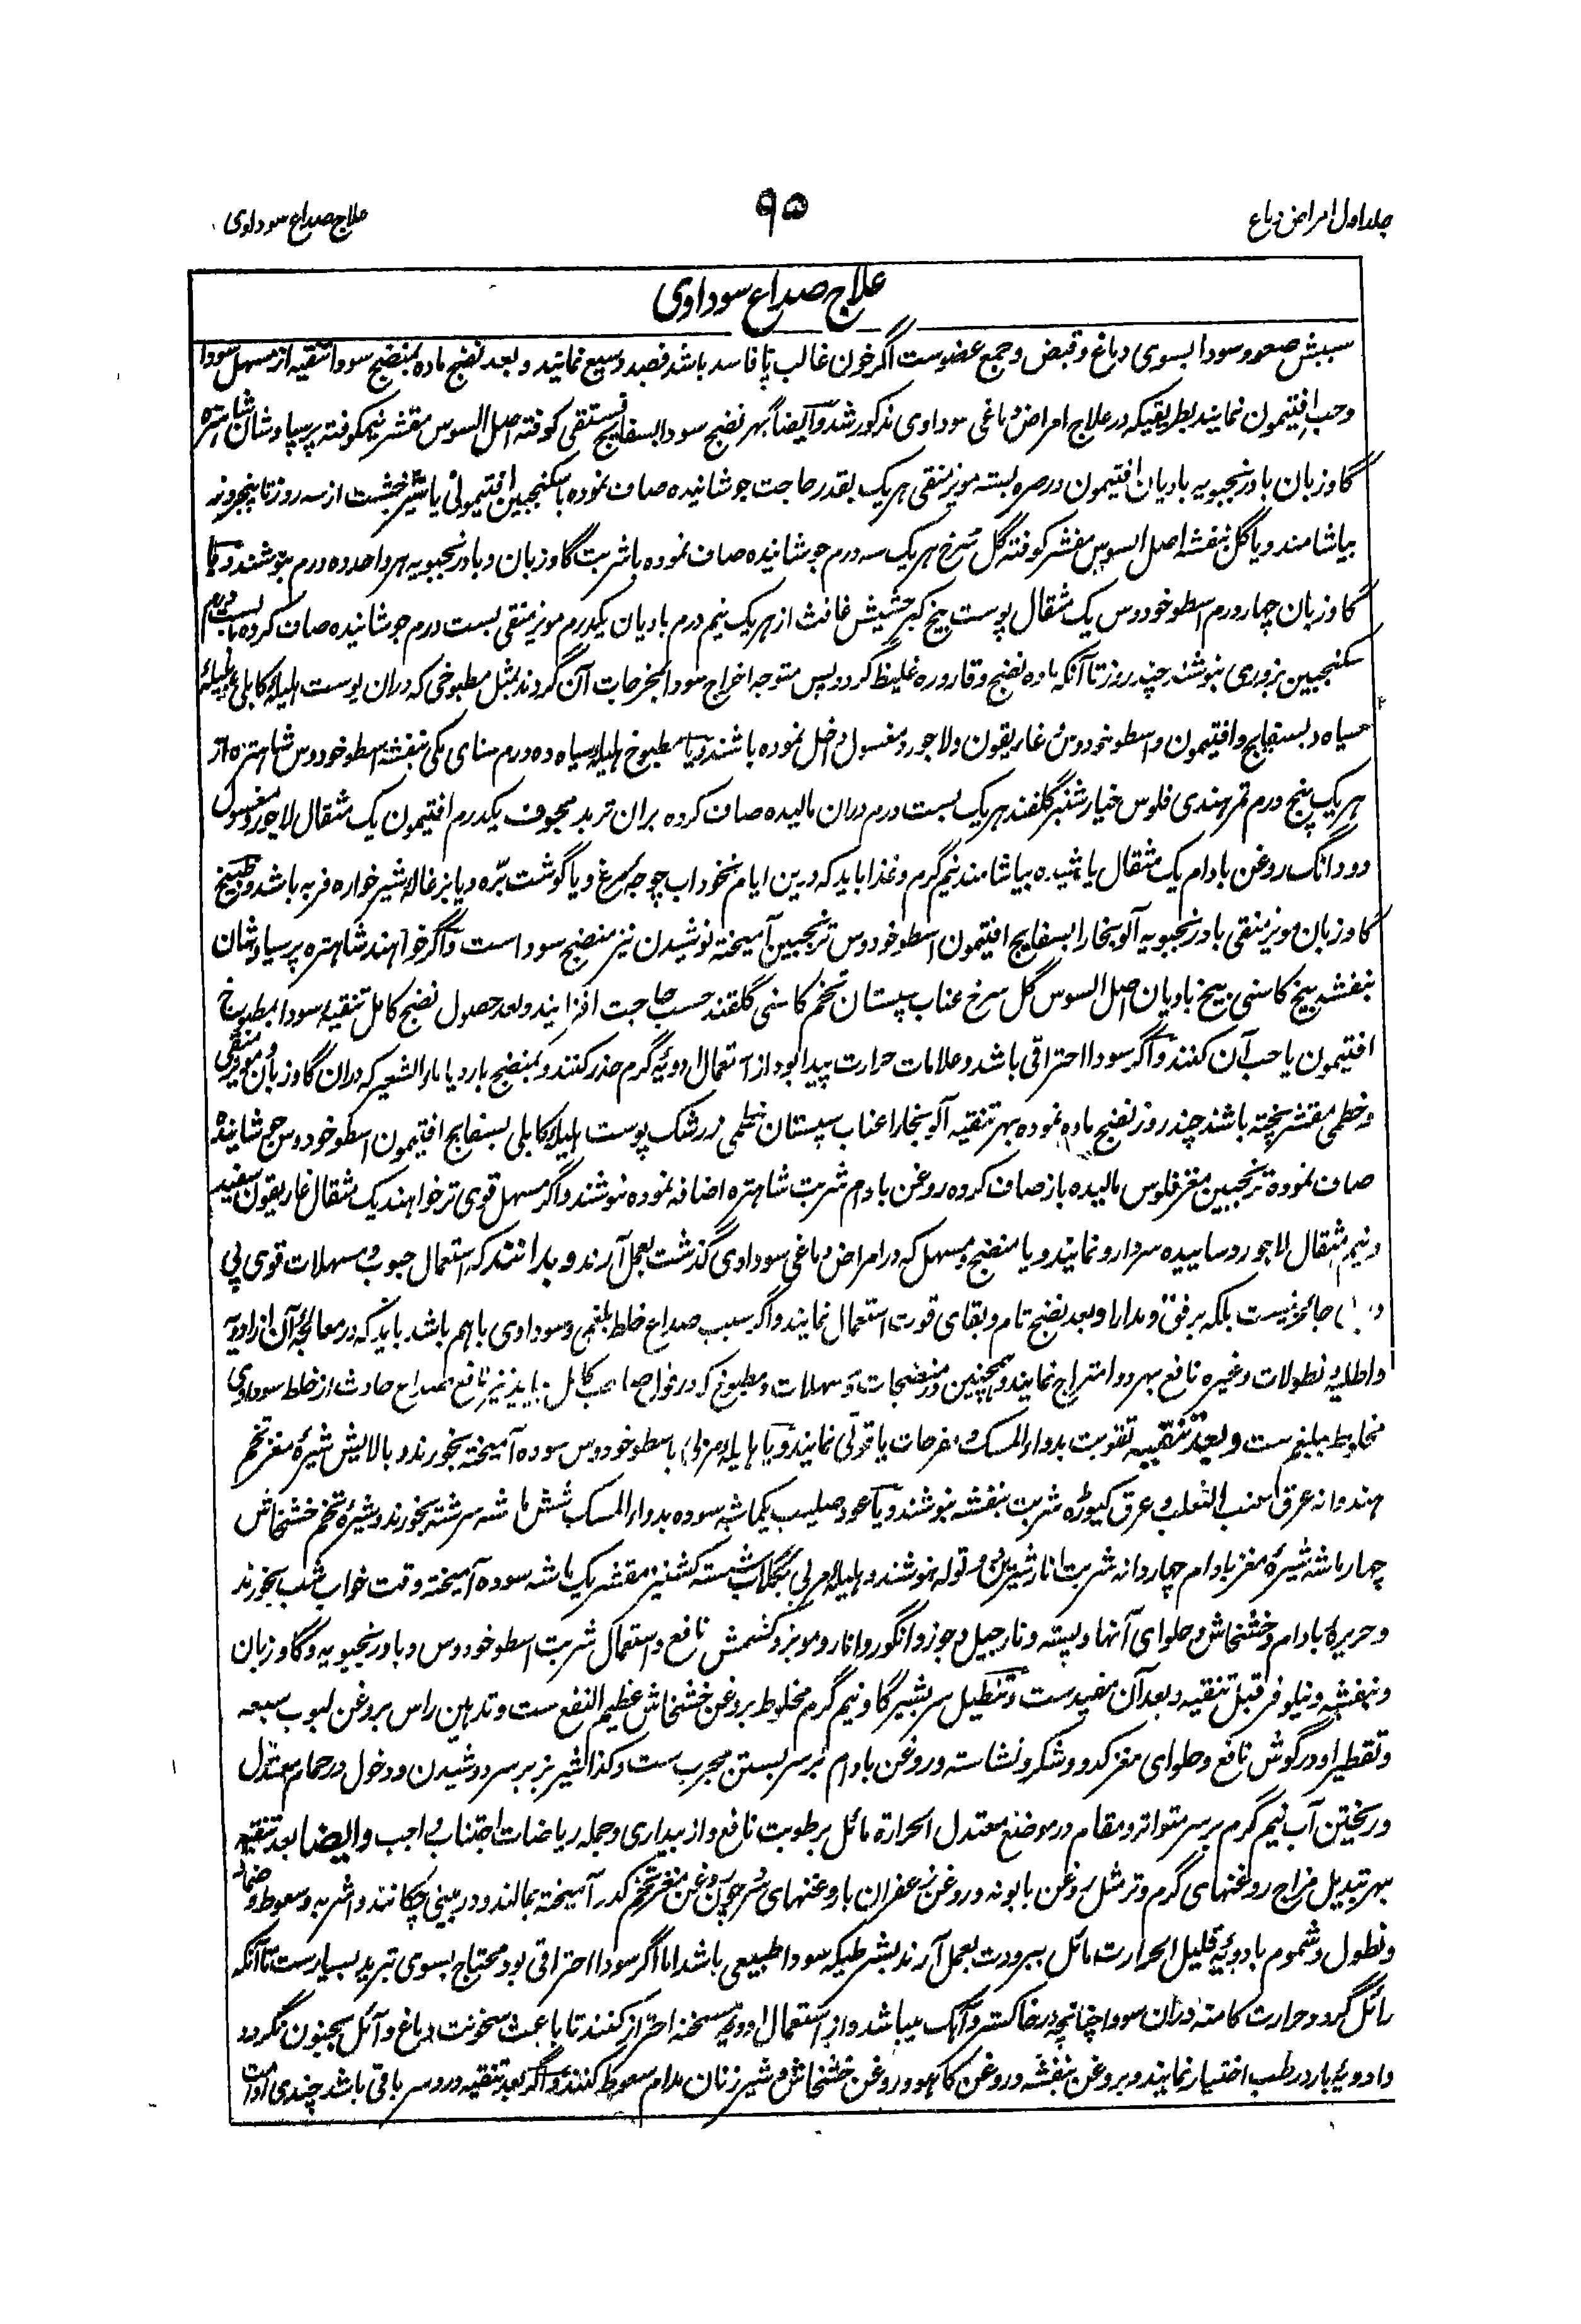 جلد اول امراض دماغ
۹۵
علاج صداع سوداوی
علاج صداع سوداوی
سببش صعود سودا بسوی دماغ و قبض و جمع عضوست اگر خون غالب یا فاسد باشد فصد وسیع نمایند و بعد نضج ماده بمنضج سودا تنقیه از مسهل سودا
و حب افتیمون نمایند بطریقیکه در علاج امراض دماغی سوداوی مذکور شد و ایضاً بهر نضج سودا بسفایج فستقی کوفته اصل السوس مقشر نیمکوفته پرسیاوشان شاهتره
گاوزبان بادرنجبویه بادیان افتیمون در صره بسته مویز منقی هر یک بقدر حاجت جوشانیده صاف نموده با سکنجبین افتیمونی یا شیرخشت از سه روز تا پنجروز
بیاشامند و یا گل بنفشه اصل السوس مقشر کوفته گل سرخ هر یک سه درم جوشانیده صاف نموده با شربت گاوزبان و بادرنجبویه هر واحد ده درم بنوشند و یا
گاوزبان چهار درم اسطوخودوس یک مثقال پوست بیخ کبر حشیش غافث از هر یک نیم درم بادیان یکدرم مویز منقی بست درم جوشانیده صاف کرده با بست درم
سکنجبین بزوری بنوشند چند روز تا آنکه ماده نضج و قاروره غلیظ گردد پس متوجه اخراج سودا بمخرجات آن گردند بمثل مطبوخی که دران پوست هلیله کابلی هلیله
سیاه و بسفایج و افتیمون و اسطوخودوس غاریقون و لاجورد مغسول داخل نموده باشند و یا مطبوخ هلیله سیاه ده درم سنای مکی بنفشه اسطوخودوس شاهتره از
هر یک پنج درم تمر هندی فلوس خیارشنبر گلقند هر یک بست درم دران مالیده صاف کرده بران تربد مجوف یکدرم افتیمون یک مثقال لاجورد مغسول
دو دانگ روغن بادام یک مثقال پاشیده بیاشامند نیم گرم و غذا باید که درین ایام نخوداب چوجه مرغ و یا گوشت برّه و یا بزغاله شیرخواره فربه باشد و طبیخ
گاوزبان مویز منقی بادرنجبویه آلوبخارا بسفایج افتیمون اسطوخودوس ترنجبین آمیخته نوشیدن نیز منضج سودا است و اگر خواهند شاهتره پرسیاوشان
بنفشه بیخ کاسنی بیخ بادیان اصل السوس گل سرخ عناب سپستان تخم کاسنی گلقند حسب حاجت افزایند و بعد حصول نضج کامل تنقیه سودا بمطبوخ
افتیمون یا حب آن کنند و اگر سودا احتراقی باشد و علامات حرارت پیدا بود از استعمال ادویهٔ گرم حذر کنند و بمنضج بارد یا ماءالشعیر که دران گاوزبان و مویز منقی
و خطمی مقشر پخته باشند چند روز نضج ماده نموده بهر تنقیه آلوبخارا عناب سپستان خطمی زرشک پوست هلیله کابلی بسفایج افتیمون اسطوخودوس جوشانیده
صاف نموده ترنجبین مغز فلوس مالیده باز صاف کرده روغن بادام شربت شاهتره اضافه نموده نوشند و اگر مسهل قوی تر خواهند یک مثقال غاریقون سفید
و نیم مثقال لاجورد ساییده سردارو نمایند و یا منضج و مسهل که در امراض دماغی سوداوی گذشت بعمل آرند و بدانند که استعمال حبوب و مسهلات قوی پی
جائز نیست بلکه برفق و مدارا و بعد نضج تام و بقای قوت استعمال نمایند و اگر سبب صداع خلط بلغمی و سوداوی باهم باشد باید که در معالجهٔ آن از ادویه
و اطلیه نطولات و غیره نافع بهر دو امتزاج نمایند و همچنین در منضجات و مسهلات و مطبوخ که در قول صاحب کامل بیاید نیز نافع صداع حادث از خلط سوداوی
مخلوط ببلغم ست و بعد تنقیه تقویت بدواء المسک و مفرحات یاقوتی نمایند و یا هلیله مربی با سطوخودوس سوده آمیخته بخورند و بالایش شیرهٔ مغز تخم
هندوانه عرق عنب الثعلب و عرق کیوڑه شربت بنفشه بنوشند و یا عود صلیب یکماشه سوده بدواء المسک شش ماشه سرشته بخورند و شیرهٔ تخم خشخاش
چهار ماشه شیرهٔ مغز بادام چهار دانه شربت انار شیرین دو توله بنوشند و هلیله مربی بگلاب شسته کشنیز مقشر یک ماشه سوده آمیخته وقت خواب شب بخورند
و حریرهٔ بادام و خشخاش و حلوای آنها و پسته و نارجیل و جوز و انگور و انار و مویز و کشمش نافع و استعمال شربت اسطوخودوس و بادرنجبویه و گاوزبان
و بنفشه و نیلوفر قبل تنقیه و بعد آن مفید ست و تنطیل سر بشیر گاو نیم گرم مخلوط بروغن خشخاش عظیم النفع ست و تدهین راس بروغن لبوب سبعه
و تقطیر او در گوش نافع و حلوای مغز کدو و شکر و نشاسته و روغن بادام بر سر بستن مجرب ست و کذا شیر بز بر سر دوشیدن و دخول در حمام معتدل
و ریختن آب نیم گرم بر سر متواتر و مقام در موضع معتدل الحرارة مائل برطوبت نافع و از بیداری و جمله ریاضات اجتناب واجب و ایضا بعد تنقیه
بهر تبدیل مزاج روغنهای گرم و تر مثل روغن بابونه و روغن زعفران با روغنهای سرد چون روغن مغز تخم کدر آمیخته بمالند و در بینی چکانند و اشربه و سعوط و ضماد
و نطول و شموم بادویهٔ قلیل الحرارت مائل ببرودت بعمل آرند بشرطیکه سودا طبیعی باشد اما اگر سودا احتراقی بود محتاج بسوی تبرید بسیار ست تا آنکه
زائل گردد حرارت کامنه دران سودا چنانچه در خاکستر و آهک میباشد و از استعمال ادویه مسخنه احتراز کنند تا باعث سخونت دماغ و آئل بجنون نگردد
و ادویهٔ بارد رطب اختیار نمایند و بروغن بنفشه و روغن کاهو و روغن خشخاش و شیر زنان مدام سعوط کنند و اگر بعد تنقیه درد سر باقی باشد چندی